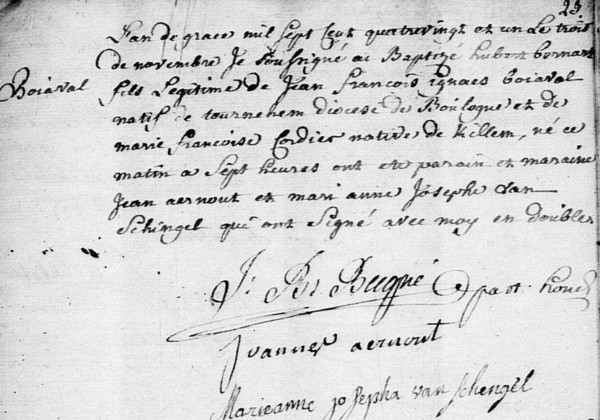 23
L'an de grace mil sept cent quatrevingt et un Le trois
de novembre Je soussigné ai Baptizé hubert bernard
Boiaval
fils Legitime de Jean François ignaes boiaval
natif de tournehem diocese de Boulogne et de
marie francoise Cordier native de Killem, né ce
matin a Sept heures ont eté parain et maraine
Jean aernout et mari anne Josephe van
Schingel qui ont Signé avec moy en doubles
J: Bt Becqué past. hond
Joannes aernout
Marieanne josepha van schengel